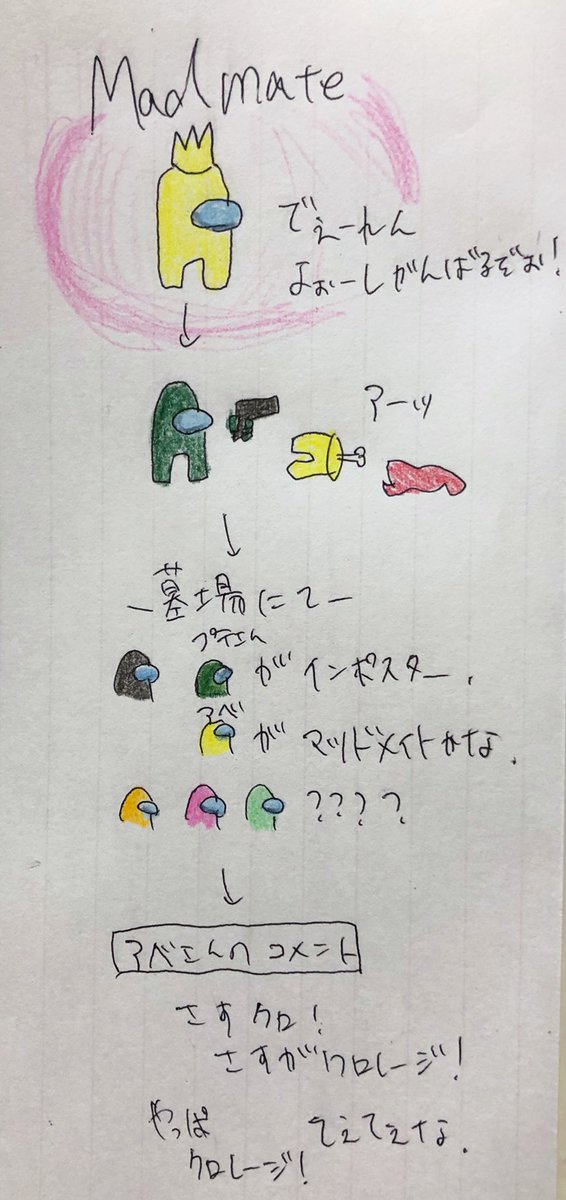 Madmate
でぇーれん
よぉーしがんばるぞぉ!
アーッ
－墓場にて－
プテさん
が インポスター.
アベ
が マッドメイトかな.
????
アベさんの コメント
さすクロ!
さすがクロレージ!
やっぱ
クロレージ!
てぇてぇな.